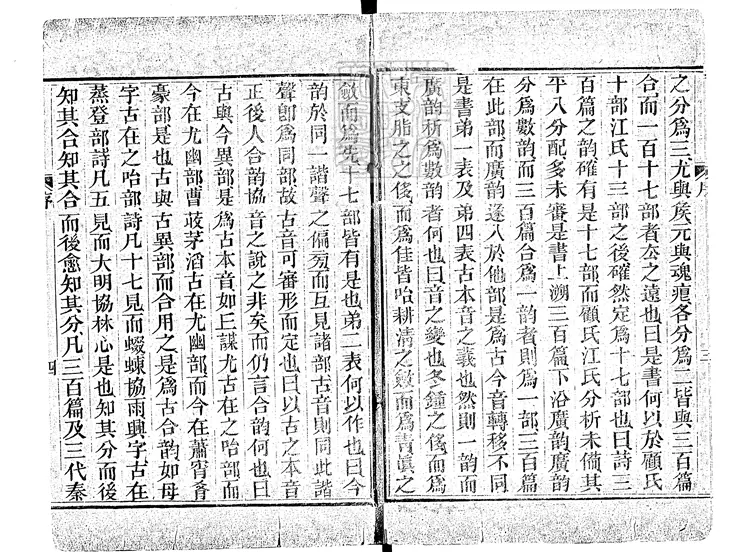 之分爲三尤與矦元與魂痕各分爲二皆與三百篇
合而一百十七部者厺之遠也曰是書何以於顧氏
十部江氏十三部之後確然定爲十七部也曰詩三
百篇之韵確有是十七部而顧氏江氏分析未備其
平入分配多未審是書上溯三百篇下沿廣韵廣韵
分爲數韵而三百篇合爲一韵者則爲一部三百篇
在此部而廣韵遂入於他部是爲古今音轉移不同
是書弟一表及弟四表古本音之義也然則一韵而
廣韵析爲數韵者何也曰音之變也冬鍾之侈而爲
東支脂之之侈而爲佳皆咍耕清之斂而爲青眞之
斂而爲先十七部皆有是也弟二表何以作也曰今
韵於同一諧聲之偏旁而互見諸部古音則同此諧
聲卽爲同部故古音可審形而定也曰以古之本音
正後人合韵協音之說之非矣而仍言合韵何也曰
古與今異部是爲古本音如丘謀尤古在之咍部而
今在尤幽部曹茅滔古在尤幽部而今在蕭宵肴
豪部是也古與古異部而合用之是爲古合韵如母
字古在之咍部詩凡十七見而蝃蝀協雨興字古在
蒸登部詩凡五見而大明協林心是也知其分而後
知其合知其合而後愈知其分凡三百篇及三代秦
序
四
三